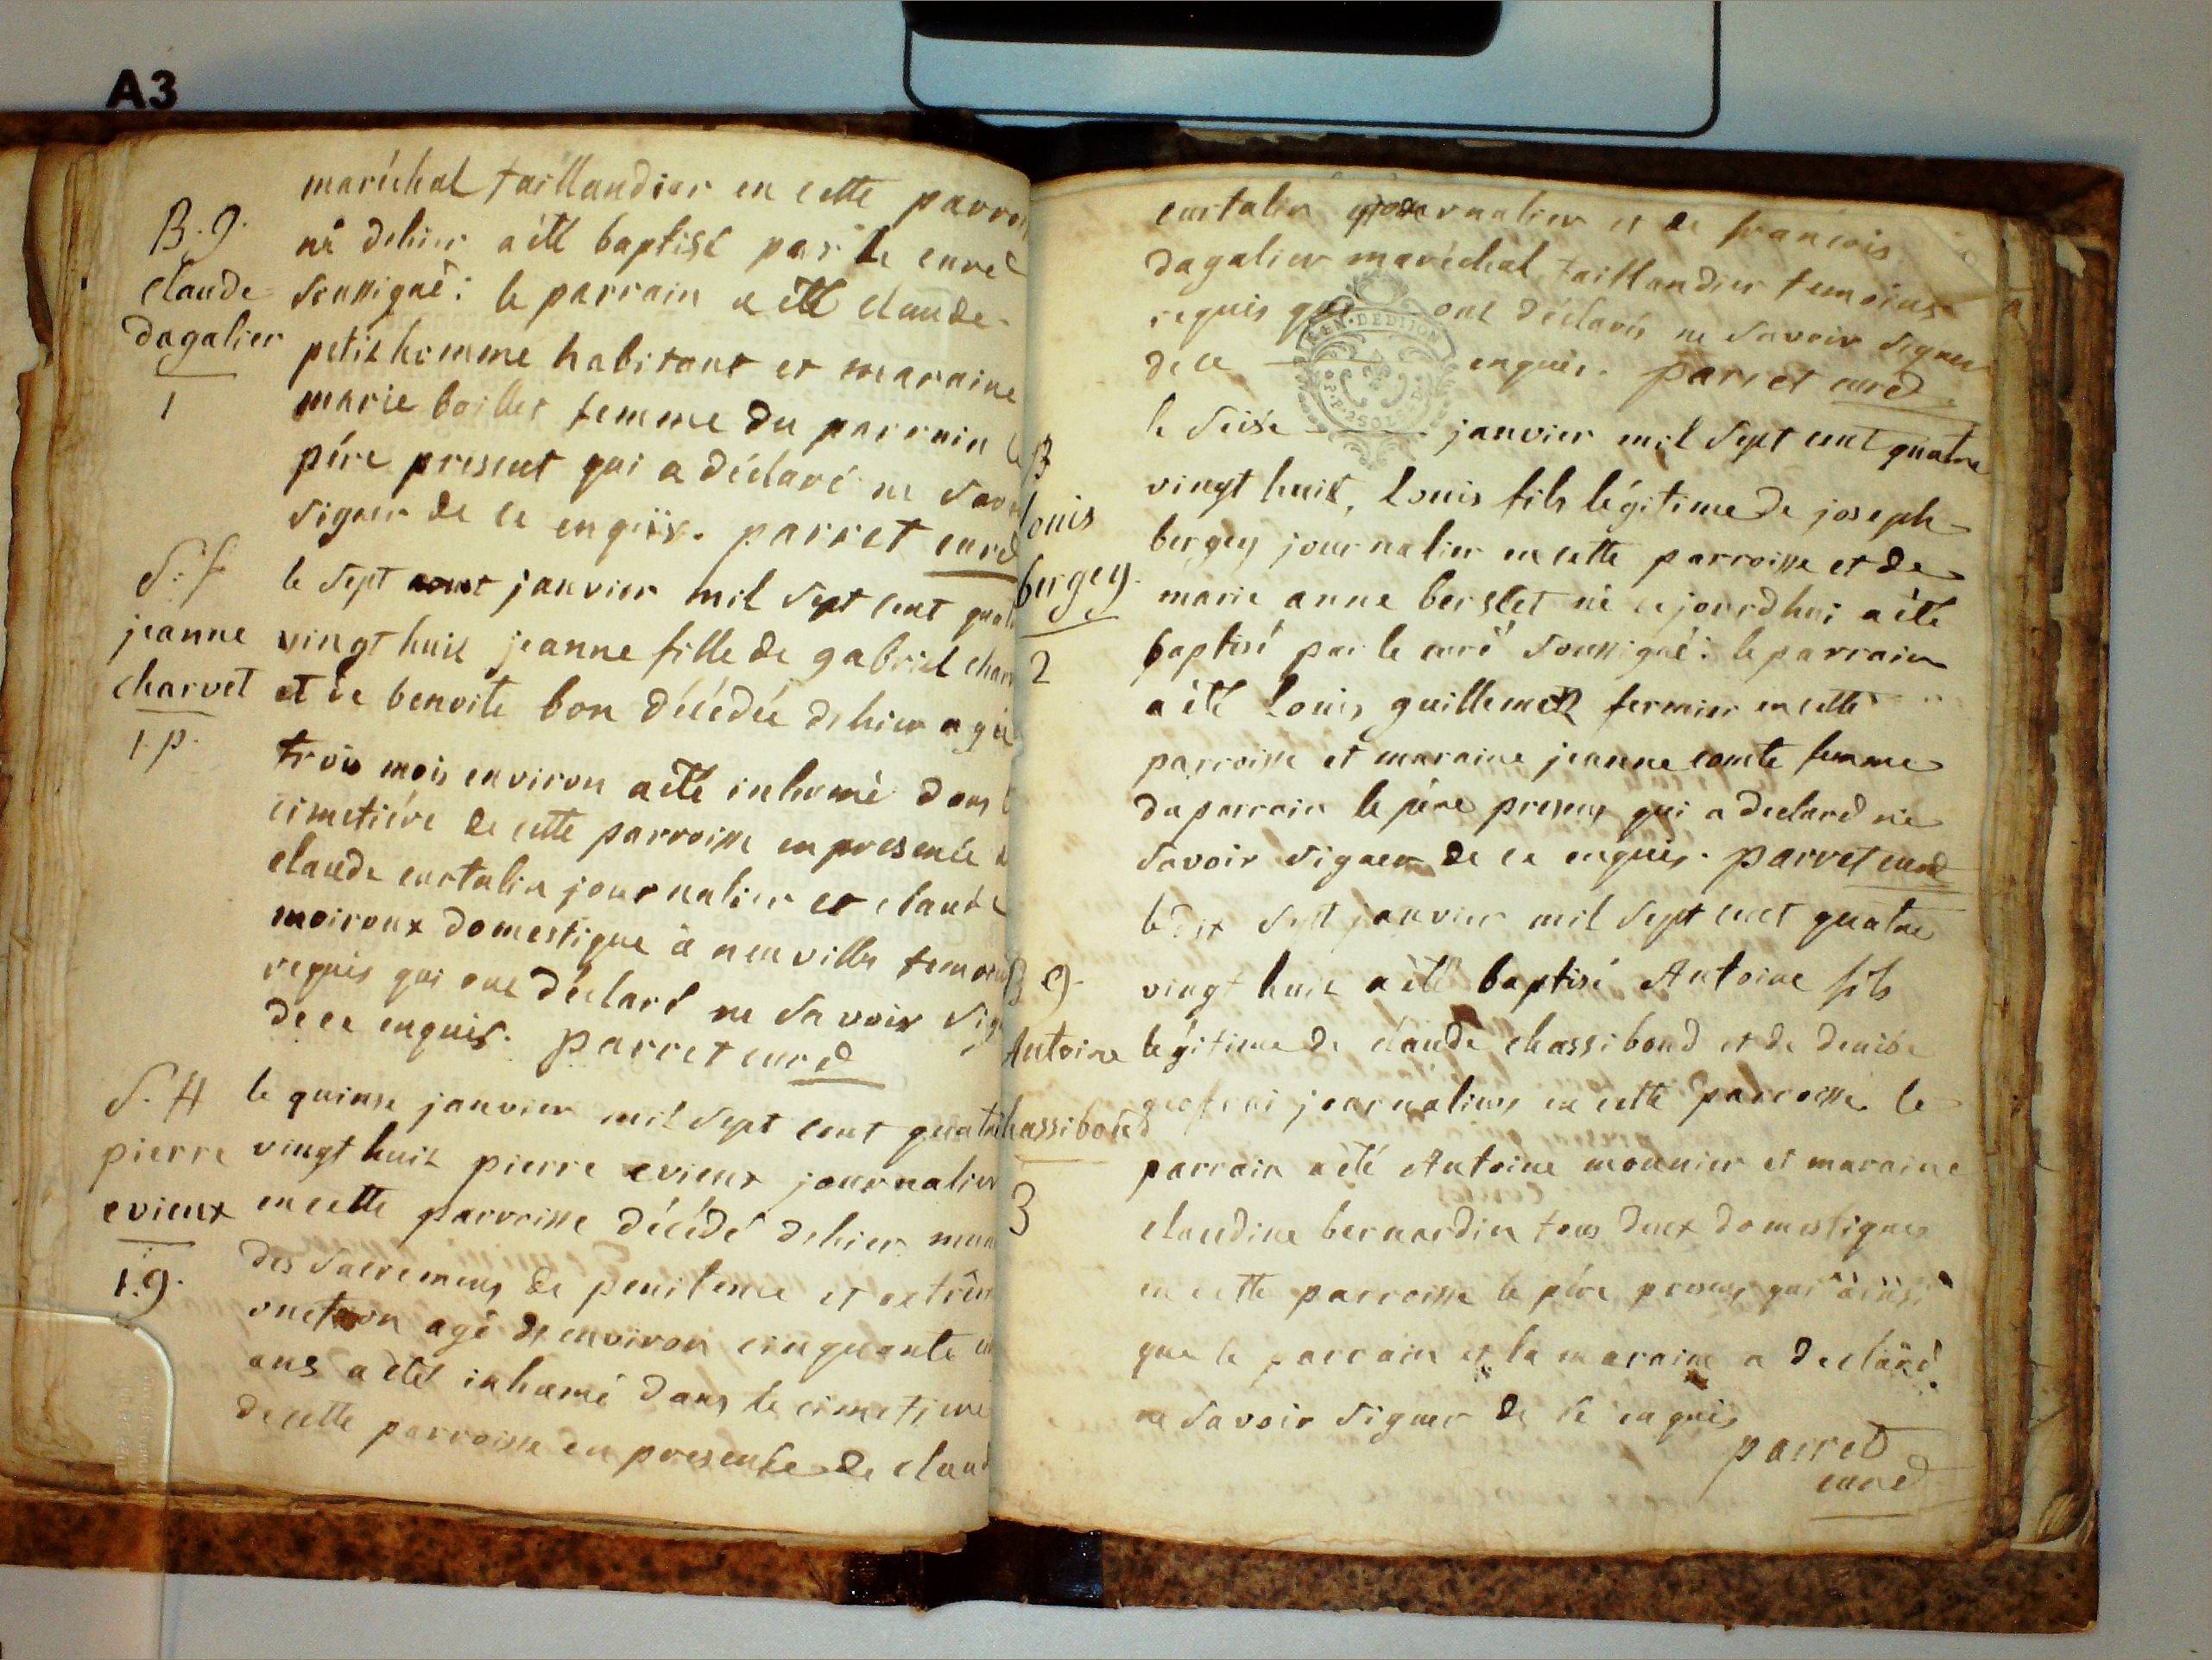 A3
maréchal taillandier en cette parroi
B. g.
né dehier a été baptisé par le curé
claude
soussigné : le parrain a été claude
dagalier
petithomme habitant et maraine
1
marie boillet femme du parrain le
père present qui a déclaré ne savoi
signer de ce enquis. parret curé
S. f.
le sept janvier mil sept cent quat
jeanne
vingt huit jeanne fille de gabriel char
charvet
et de benoite bon décédée dehier agée
1. p.
trois mois environ a été inhumé dans
cimetière de cette parroisse en presence
claude curtalin journalier et claude
moiroux domestique à neuville temoins
requis qui ont déclaré ne savoir sig
de ce enquis. parret curé
S. H
le quinse janvier mil sept cent quatr
pierre
vingt huit pierre evieux journalier
evieux
en cette parroisse décédé dehier mun
1. g.
des sacremens de penitence et extrêm
onction agé de environ cinquante
ans a été inhumé dans le cimetiere
de cette parroisse en presence de claud
curtalin journalier et de francois
dagalier maréchal taillandier temoins
requis qui ont déclarés ne savoir signer
de ce enquis. parret curé
le seise janvier mil sept cent quatre
B
vingt huit, Louis fils légitime de joseph
louis
bergey journalier en cette parroisse et de
bergey.
marie anne berslet né cejourdhui a été
2
baptisé par le curé soussigné : le parrain
a été Louis guillemet fermier en cette
parroisse et maraine jeanne comte femme
du parrain le père present qui a declaré ne
savoir signer de ce enquis. parret curé
le dix sept janvier mil sept cent quatre
B g.
vingt huit a été baptisé Antoine fils
Antoine
légitime de claude chassiboud et de denise
chassiboud
journaliers en cette parroisse le
3
parrain a été Antoine mounier et maraine
claudine bernardin tous deux domestiques
en cette parroisse le père present qui ainsi
que le parrain et la maraine a declaré
ne savoir signer de ce enquis
parret
curé